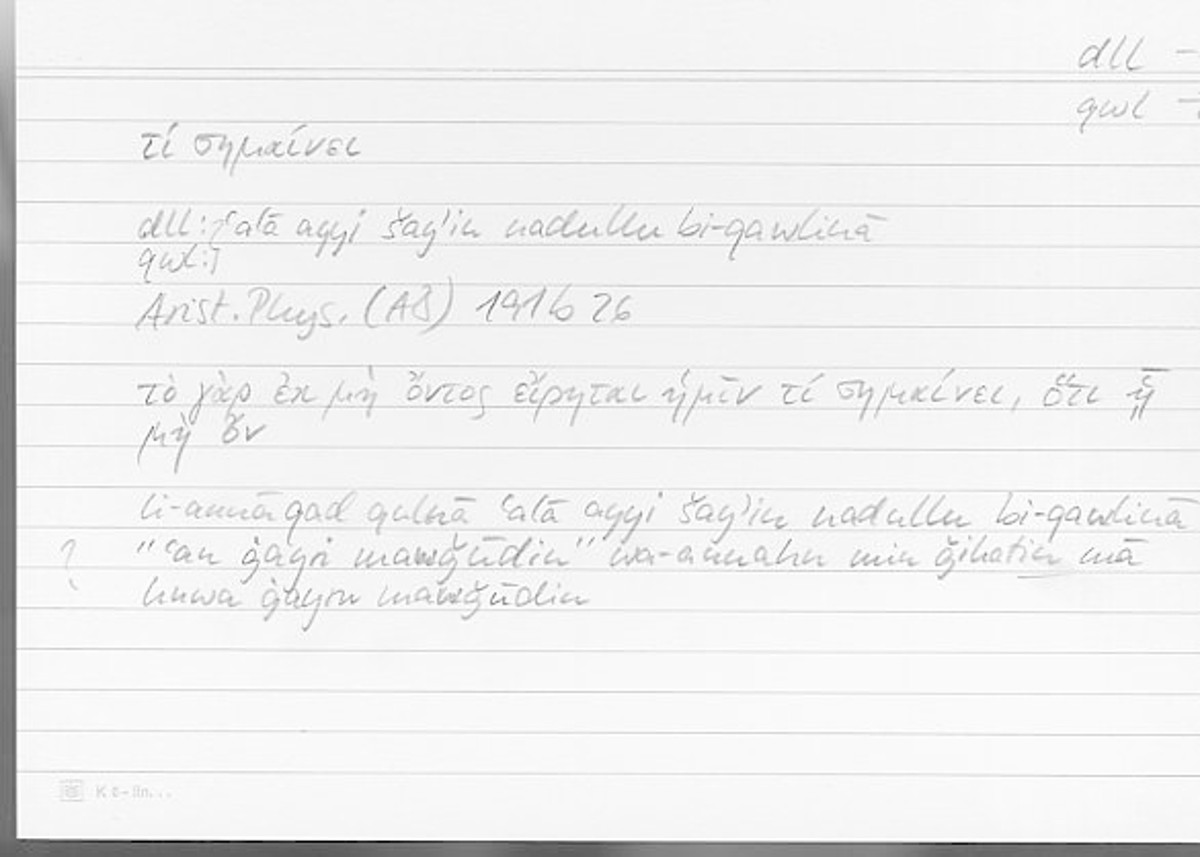 dll –
qwl –
τί σημαίνει
dll:⌈ʿalā ayyi šayʾin nadullu bi-qawlinā
qwl:⌉
Arist. Phys. (A8) 191b 26
τὸ γὰρ ἐκ μὴ ὄντος εἴρηται ἡμῖν τί σημαίνει, ὅτι ᾗ
μὴ ὄν
li-annā qad qulnā ʿalā ayyi šayʾin nadullu bi-qawlinā
? "ʿan ġayri mawǧūdin" wa-annahu min ǧihatin mā
huwa ġayru mawǧūdin